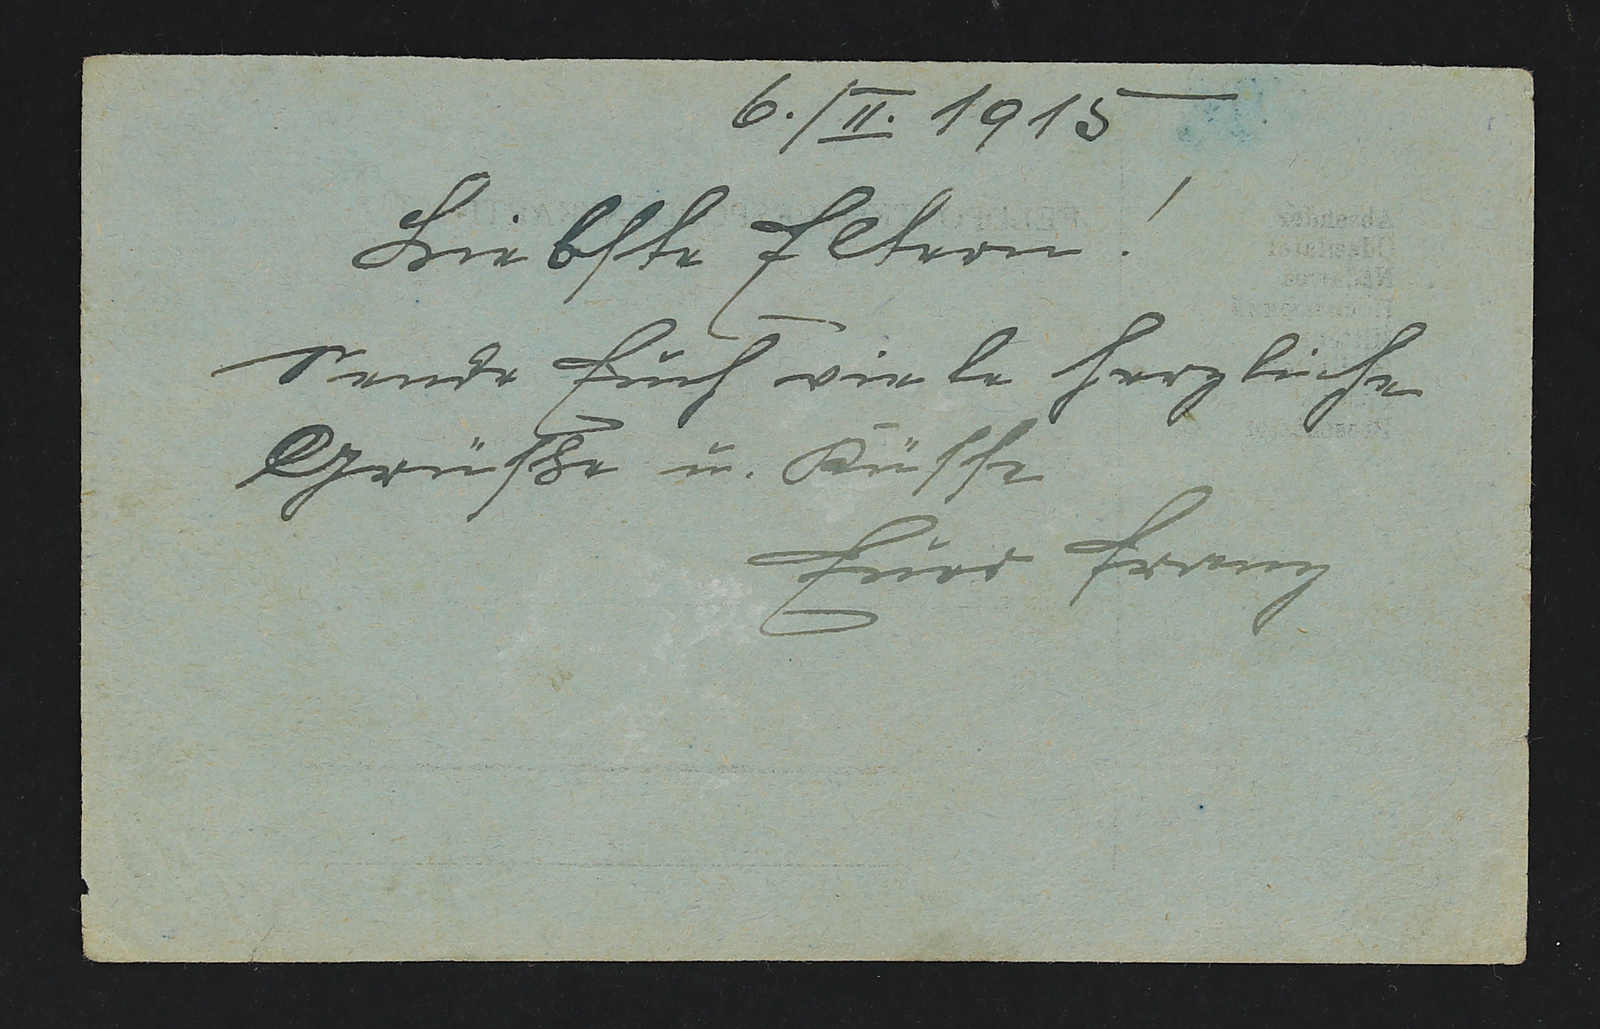 6./II. 1915
Liebste Eltern!
Sende Euch viele herzliche
Grüße u. Küsse
Euer Franz